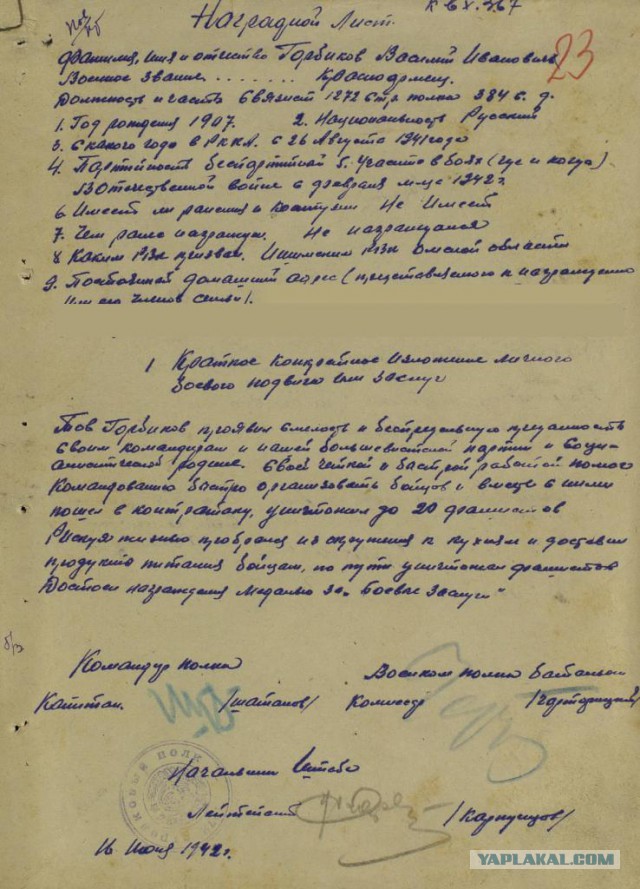 К 6 х. 367
Наградной Лист.
23
Фамилия, имя и отчество Горбиков Василий Иванович
Военное звание . . . . . . . Красноармеец.
Должность и часть Связист 1272 Стр. полка 384 с. д.
1. Год рождения 1907. 2. Национальность Русский
3. С какого года в РККА. с 26 Августа 1941 года
4. Партийность беспартийный 5. Участие в боях (где и когда)
В Отечественной войне с февраля м-ца 1942 г.
6. Имеет ли ранения и контузии Не Имеет
7. Чем ранее награжден. Не награждался
8 Каким РВК призван. Ишимским РВК Омской области
9. Постоянный домашний адрес (представляемого к награждению
или его членов семьи).
1 Краткое Конкретное изложение личного
боевого подвига или заслуг
Тов Горбиков проявил смелость и беспредельную преданность
своим командирам и нашей большевистской партии и социа-
листической родине. Своей четкой и быстрой работой помог
Командованию быстро организовать бойцов и вместе с ними
пошел в контратаку, уничтожил до 20 фашистов
Рискуя жизнью пробрался из окружения к кухням и доставил
продукты питания бойцам, по пути уничтожая фашистов
Достоин награждения Медалью за "Боевые заслуги"
б/з
Командир полка Военком полка батальон.
Капитан. /Шатанов/ Комиссар
Начальник Штаба
Лейтенант /Карпушов/
16 Июня 1942 г.
полк
YAPLAKAL.COM